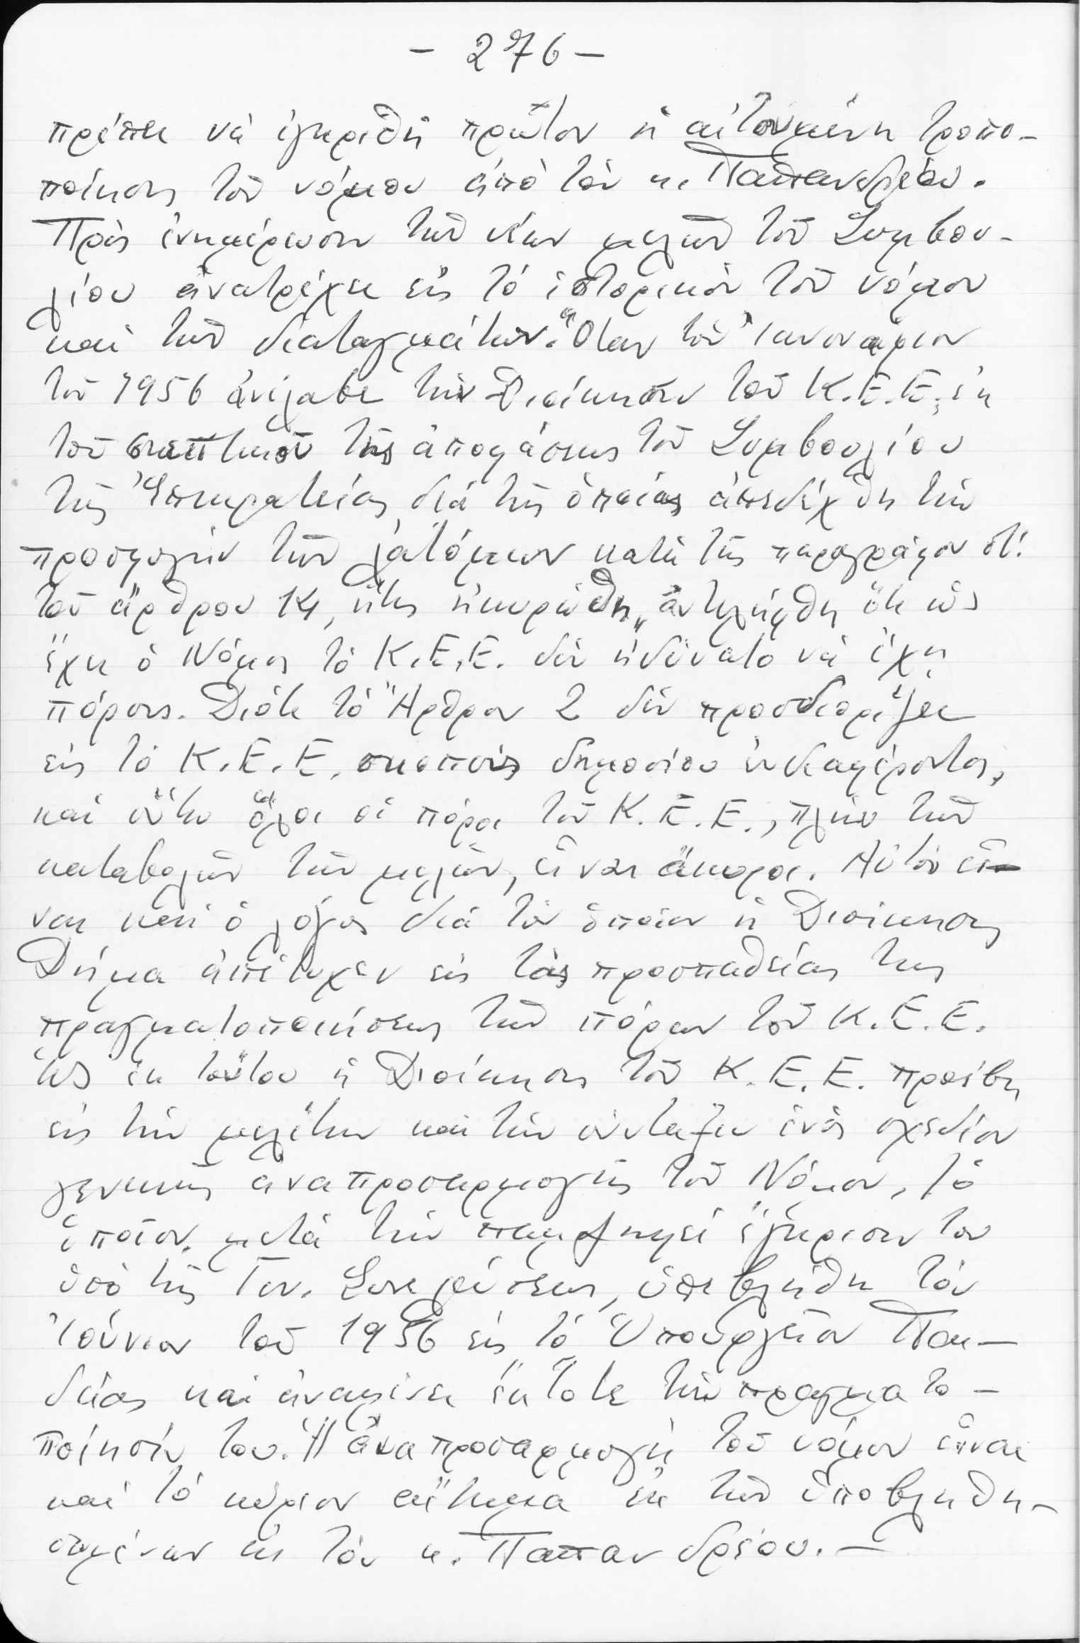 - 276 -
πρέπει νά ἐγκριθῆ πρῶτον ἡ αἰτουμένη τροπο-
ποίησις τοῦ νόμου ἀπό τόν κ. Παπανδρέου.
Πρός ἐνημέρωσιν τῶν νέων μελῶν τοῦ Συμβου-
λίου ἀνατρέχει εἰς τό ἱστορικόν τοῦ νόμου
καί τῶν διαταγμάτων. Ὅταν τόν Ἰανουάριον
τοῦ 1956 ἀνέλαβε τήν Διοίκησιν τοῦ Κ.Ε.Ε, ἐκ
τοῦ σκεπτικοῦ τῆς ἀποφάσεως τοῦ Συμβουλίου
τῆς Ἐπικρατείας διά τῆς ὁποίας ἀπεδέχθη τήν
προσφυγήν τῶν λατόμων κατά τῆς παραγράφου στ!
τοῦ ἄρθρου 14, ἥτις ἠκυρώθη, ἀντελήφθη ὅτι ὡς
ἔχει ὁ Νόμος τό Κ.Ε.Ε. δέν ἠδύνατο νά ἔχῃ
πόρους. Διότι τό Ἄρθρον 2 δέν προσδιορίζει
εἰς τό Κ.Ε.Ε. σκοπούς δημοσίου ἐνδιαφέροντος,
καί οὕτω ὅλοι οἱ πόροι τοῦ Κ.Ε.Ε., πλήν τῶν
καταβολῶν τῶν μελῶν, εἶναι ἄκυροι. Αὐτός εἶ-
ναι καί ὁ λόγος διά τόν ὁποῖον ἡ Διοίκησις
Δήμα ἀπέτυχεν εἰς τάς προσπαθείας της
πραγματοποιήσεως τῶν πόρων τοῦ Κ.Ε.Ε.
Ὡς ἐκ τούτου ἡ Διοίκησις τοῦ Κ.Ε.Ε. προέβη
εἰς τήν μελέτην καί τήν σύνταξιν ἑνός σχεδίου
γενικῆς ἀναπροσαρμογῆς τοῦ Νόμου, τό
ὁποῖον, μετά τήν παμψηφεί ἔγκρισίν του
ὑπό τῆς Γεν. Συνελεύσεως, ὑπεβλήθη τόν
Ἰούνιον τοῦ 1956 εἰς τό Ὑπουργεῖον Παι-
δείας καί ἀναμένει ἔκτοτε τήν πραγματο-
ποίησίν του. Ἡ ἀναπροσαρμογή τοῦ νόμου εἶναι
καί τό κύριον αἴτημα ἐκ τῶν ὑποβληθη-
σομένων εἰς τόν κ. Παπανδρέου. -